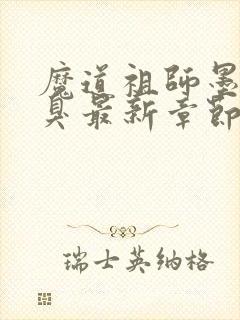 魔道祖師墨
臭最新章節
瑞士英納格